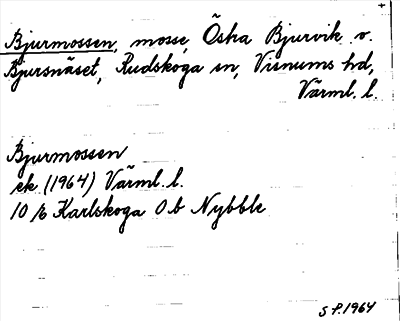 +
Bjurmossen, mosse, Östra Bjurvik o.
Bjursnäset, Rudskoga sn, Visnums hd,
Värml. l.
Bjurmossen
ek (1964) Värml. l.
10 16 Karlskoga Ob Nybble
S P. 1964